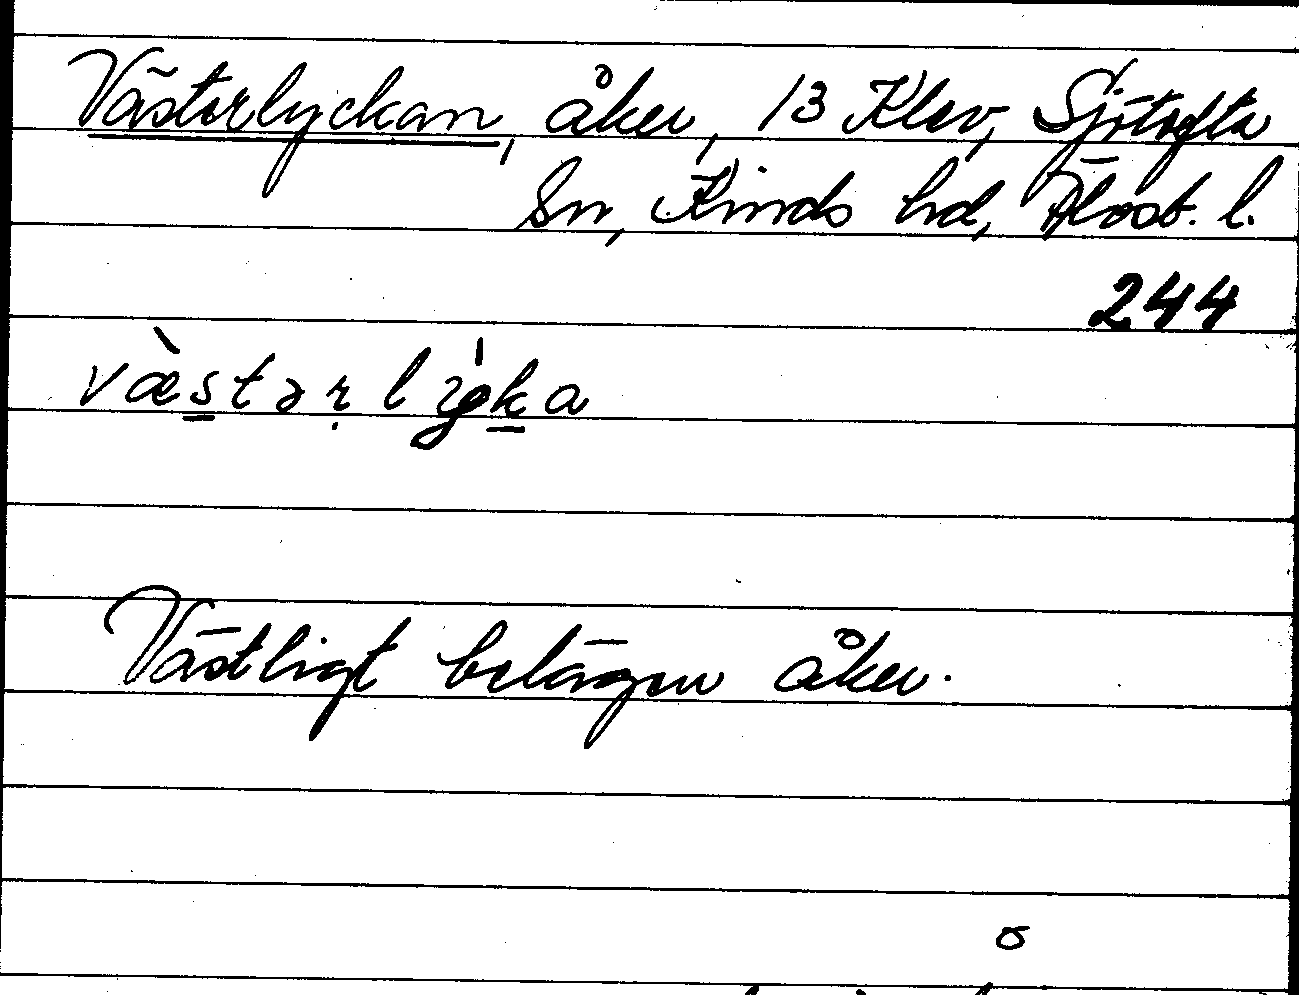 Västerlyckan, åker, 13 Klev, Sjötofta
Sn, Kinds hd, Älvsb. l.
244
Västligt belägen åker.